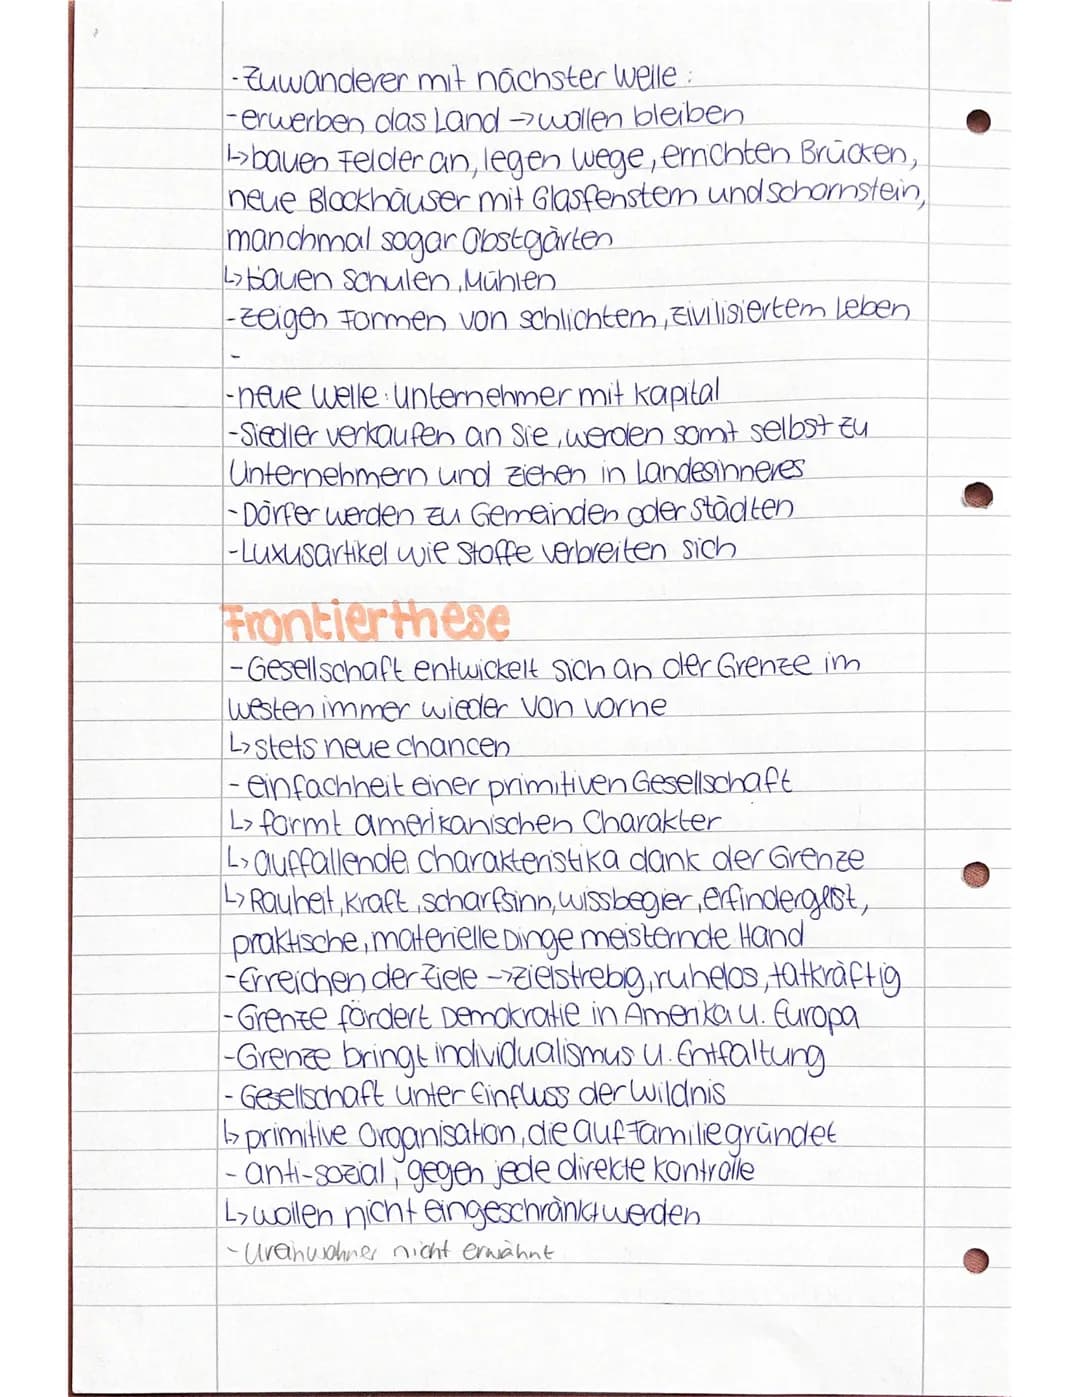 -Zuwanderer mit nächster Welle:
-erwerben das Land →wollen bleiben
↳bauen Felder an, legen Wege, errichten Brücken,
neue Blockhäuser mit Glasfenstern und Schornstein,
manchmal sogar Obstgärten
↳bauen Schulen, Mühlen
-zeigen Formen von schlichtem, zivilisiertem Leben
-
-neue Welle: Unternehmer mit Kapital
-Siedler verkaufen an Sie, werden somit selbst zu
Unternehmern und ziehen in Landesinneres
-Dörfer werden zu Gemeinden oder Städten
-Luxusartikel wie Stoffe verbreiten sich
Frontierthese
-Gesellschaft entwickelt sich an der Grenze im
Westen immer wieder von vorne
↳stets neue Chancen
-Einfachheit einer primitiven Gesellschaft
↳formt amerikanischen Charakter
↳auffallende Charakteristika dank der Grenze
↳Rauheit, Kraft, Scharfsinn, Wissbegier, Erfindergeist,
praktische, materielle Dinge meisternde Hand
-Erreichen der Ziele →zielstrebig, ruhelos, tatkräftig
-Grenze fördert Demokratie in Amerika u. Europa
-Grenze bringt Individualismus u. Entfaltung
-Gesellschaft unter Einfluss der Wildnis
↳primitive Organisation, die auf Familie gründet
-anti-sozial, gegen jede direkte Kontrolle
↳wollen nicht eingeschränkt werden
-Ureinwohner nicht erwähnt